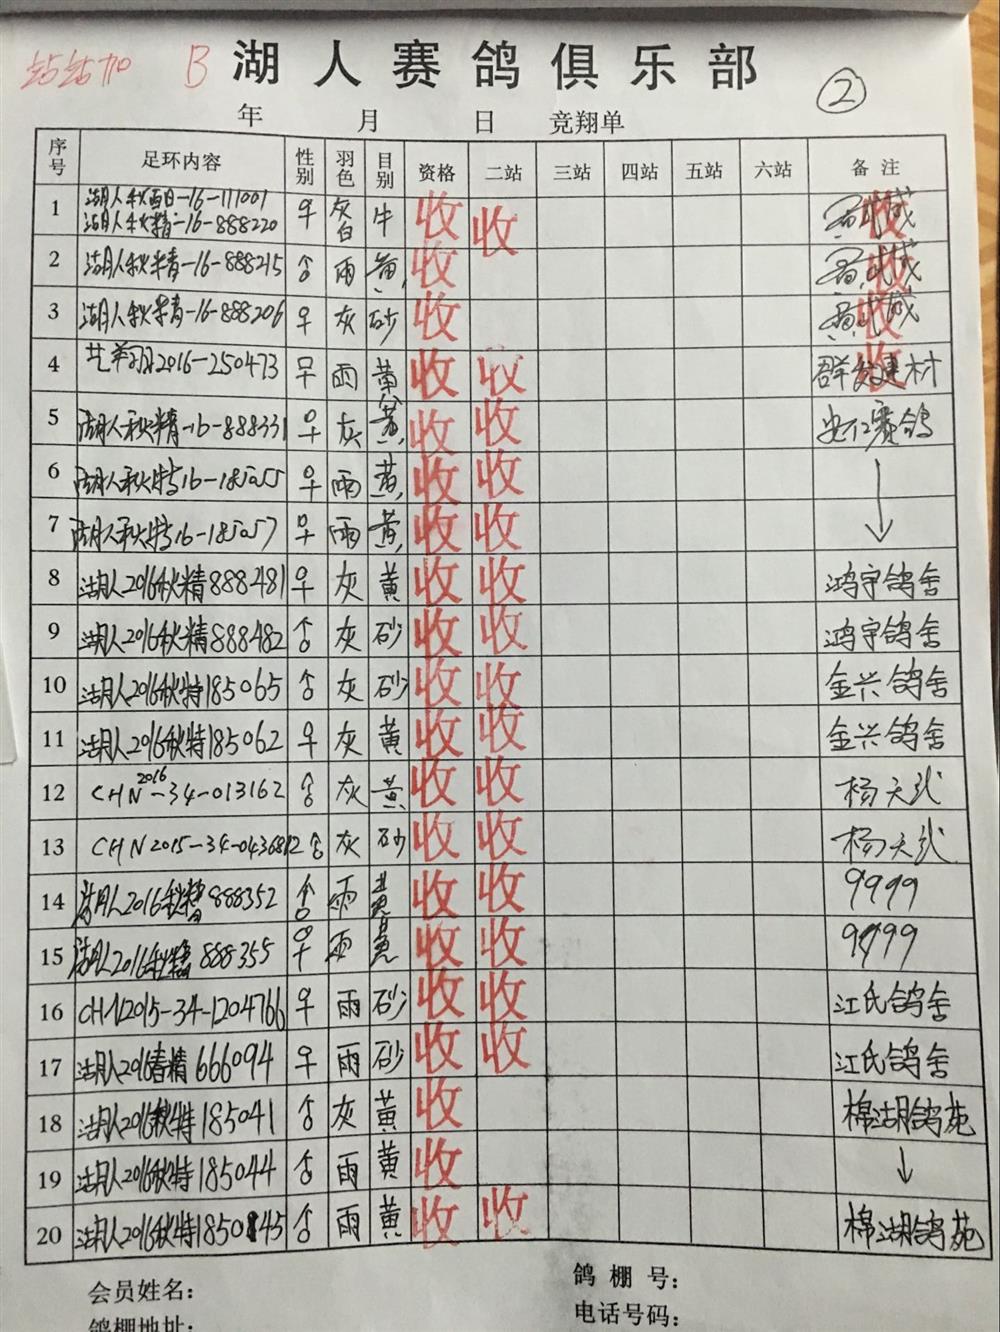 站站加 B 湖人赛鸽俱乐部 ②
年 月 日 竞翔单
序号 足环内容 性别 羽色 目别 资格 二站 三站 四站 五站 六站 备注
湖人秋西日-16-171001
1 湖人秋精-16-888220 ♀ 灰白 牛 收 收 收
2 湖人秋精-16-888215 合 雨 黄 收 收
3 湖人秋精-16-888206 ♀ 灰 砂 收 收
4 2016-250473 ♀ 雨 黄 收 收 群发建材 收
5 湖人秋精-16-888331 ♀ 灰 黄 收 收 安仁赛鸽
6 湖人秋特16-185055 ♀ 雨 黄 收 收
7 湖人秋特16-185057 ♀ 雨 黄 收 收
8 湖人2016秋精888481 ♀ 灰 黄 收 收 鸿宇鸽舍
9 湖人2016秋精888482 合 灰 砂 收 收 鸿宇鸽舍
10 湖人2016秋特185065 合 灰 砂 收 收 金兴鸽舍
11 湖人2016秋特185062 ♀ 灰 黄 收 收 金兴鸽舍
12 CHN2016-34-013162 合 灰 黄 收 收 杨天武
13 CHN2015-34-0436812 合 灰 砂 收 收 杨天武
14 湖人2016秋精888352 合 雨 黄 收 收 9999
15 湖人2016秋精888355 ♀ 雨 黄 收 收 9999
16 CHN2015-34-1204766 ♀ 雨 砂 收 收 江氏鸽舍
17 湖人2016春精666094 ♀ 雨 砂 收 收 江氏鸽舍
18 湖人2016秋特185041 合 灰 黄 收 棉湖鸽苑
19 湖人2016秋特185044 合 雨 黄 收
20 湖人2016秋特1850145 合 雨 黄 收 收 棉湖鸽苑
会员姓名： 鸽棚号：
鸽棚地址： 电话号码：